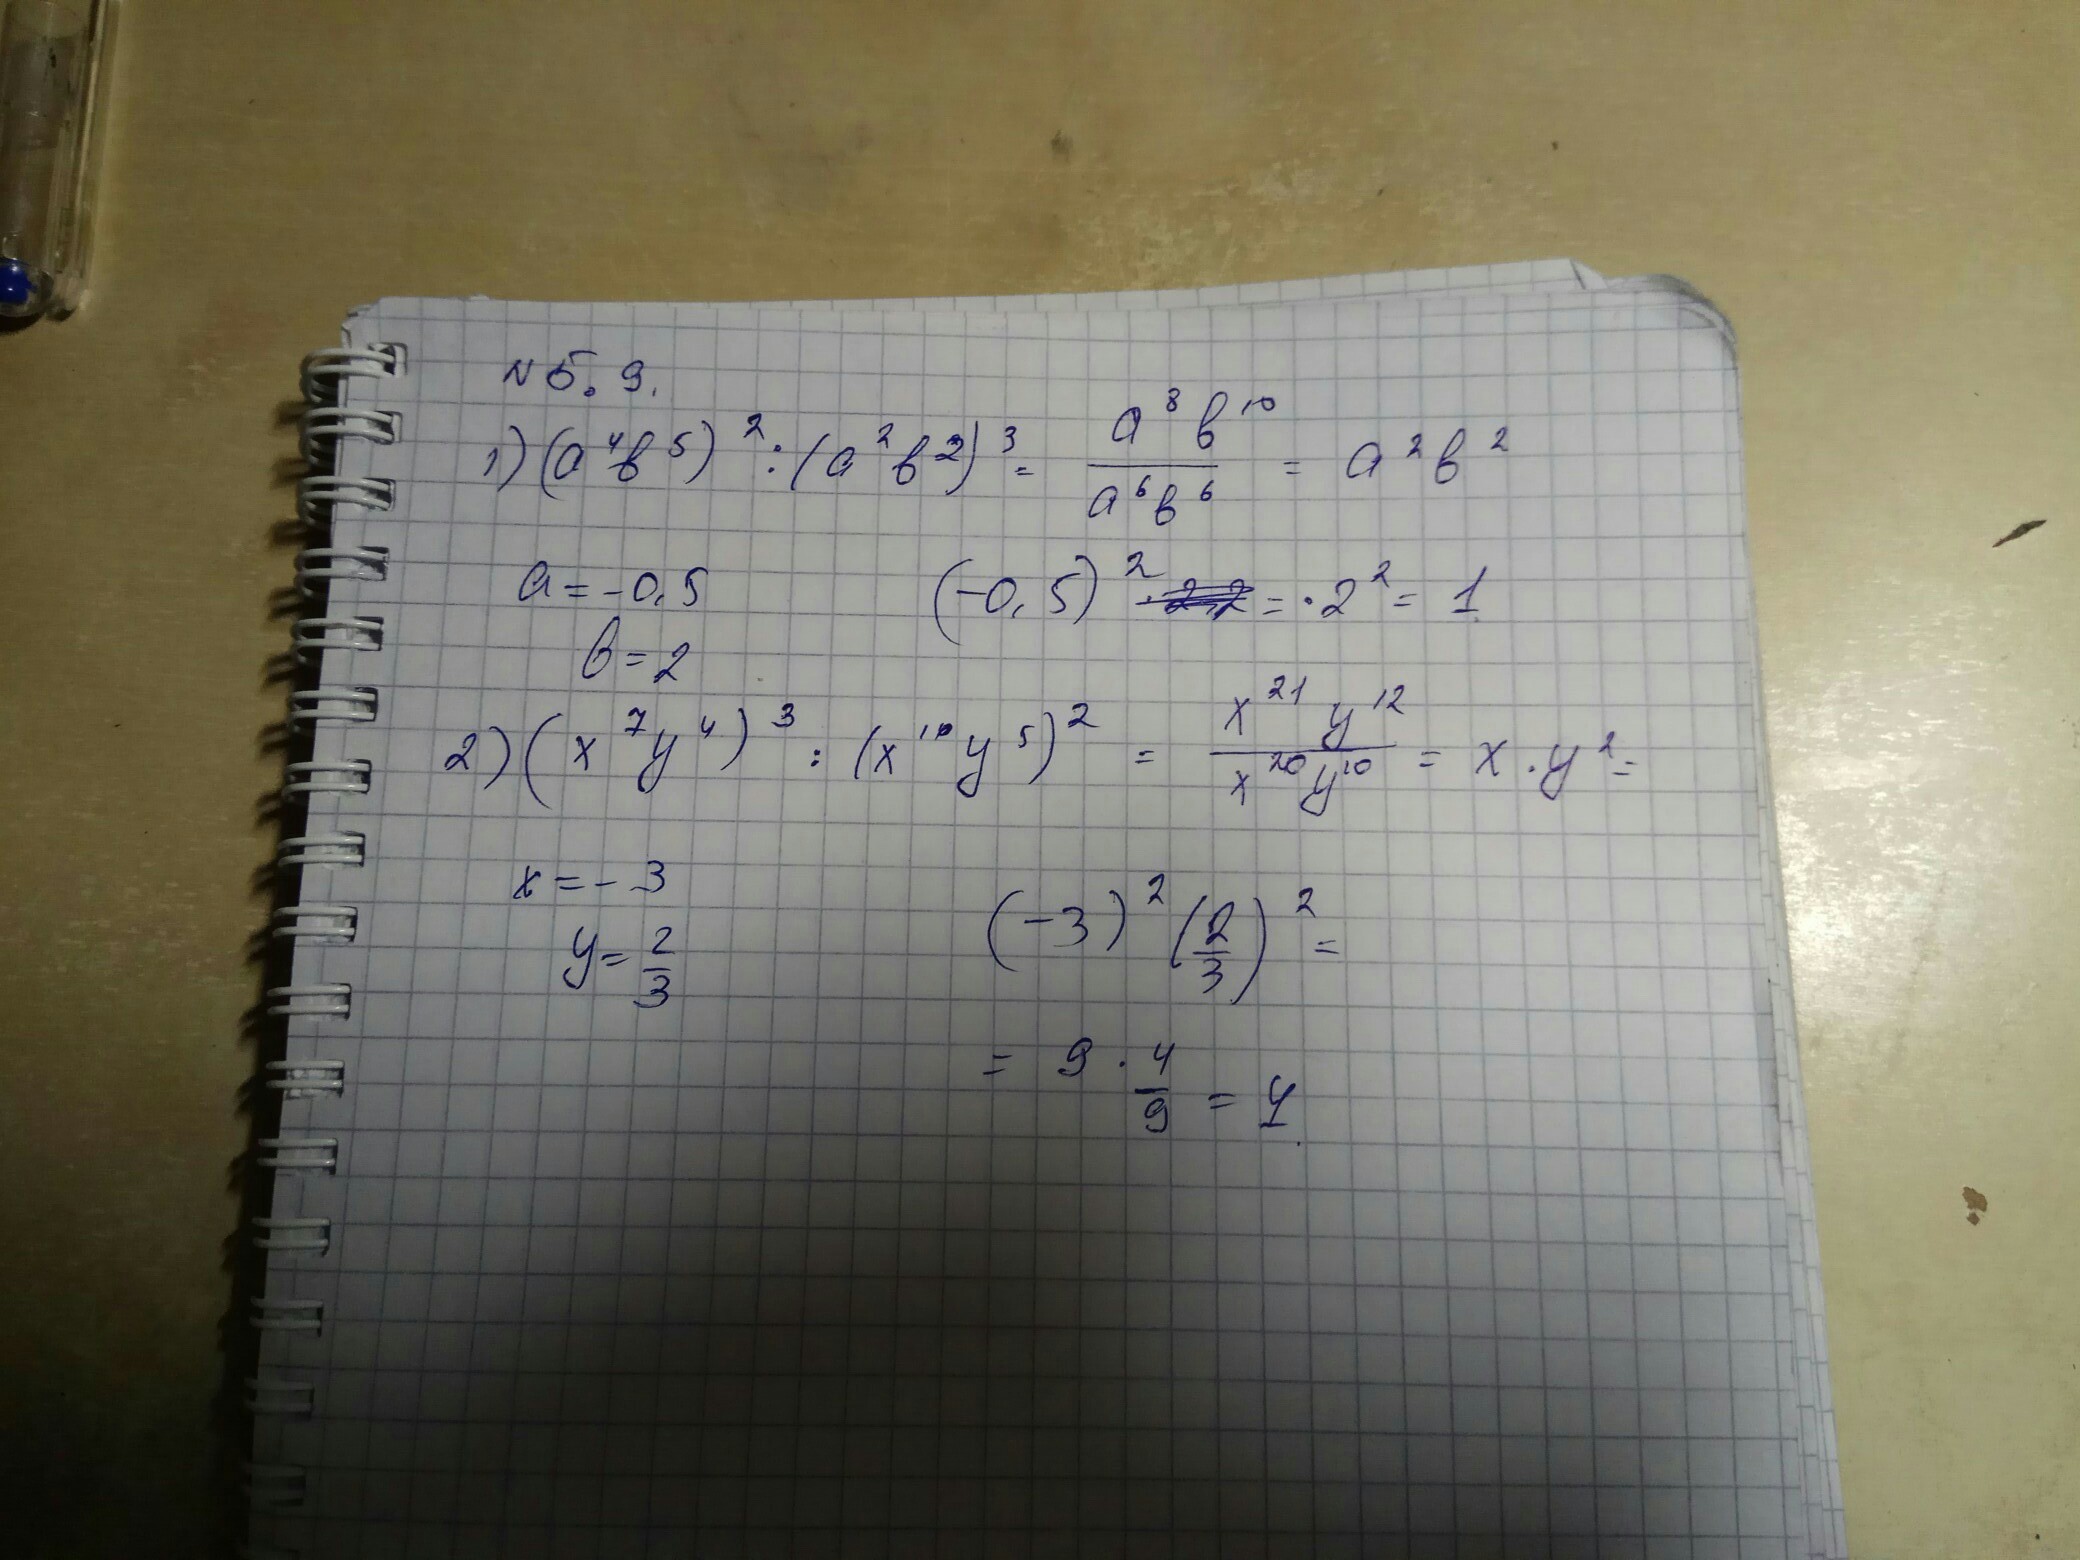 N 5.9.
1) (a⁴b⁵)² : (a²b2)³ = a⁸b¹⁰ / a⁶b⁶ = a²b²
a = -0,5 (-0,5)² = · 2² = 1
b = 2
2) (x⁷y⁴)³ : (x¹⁰y⁵)² = x²¹y¹² / x²⁰y¹⁰ = x · y² =
x = - 3 (-3)² (2/3)² =
y = 2/3
= 9 · 4/9 = 4